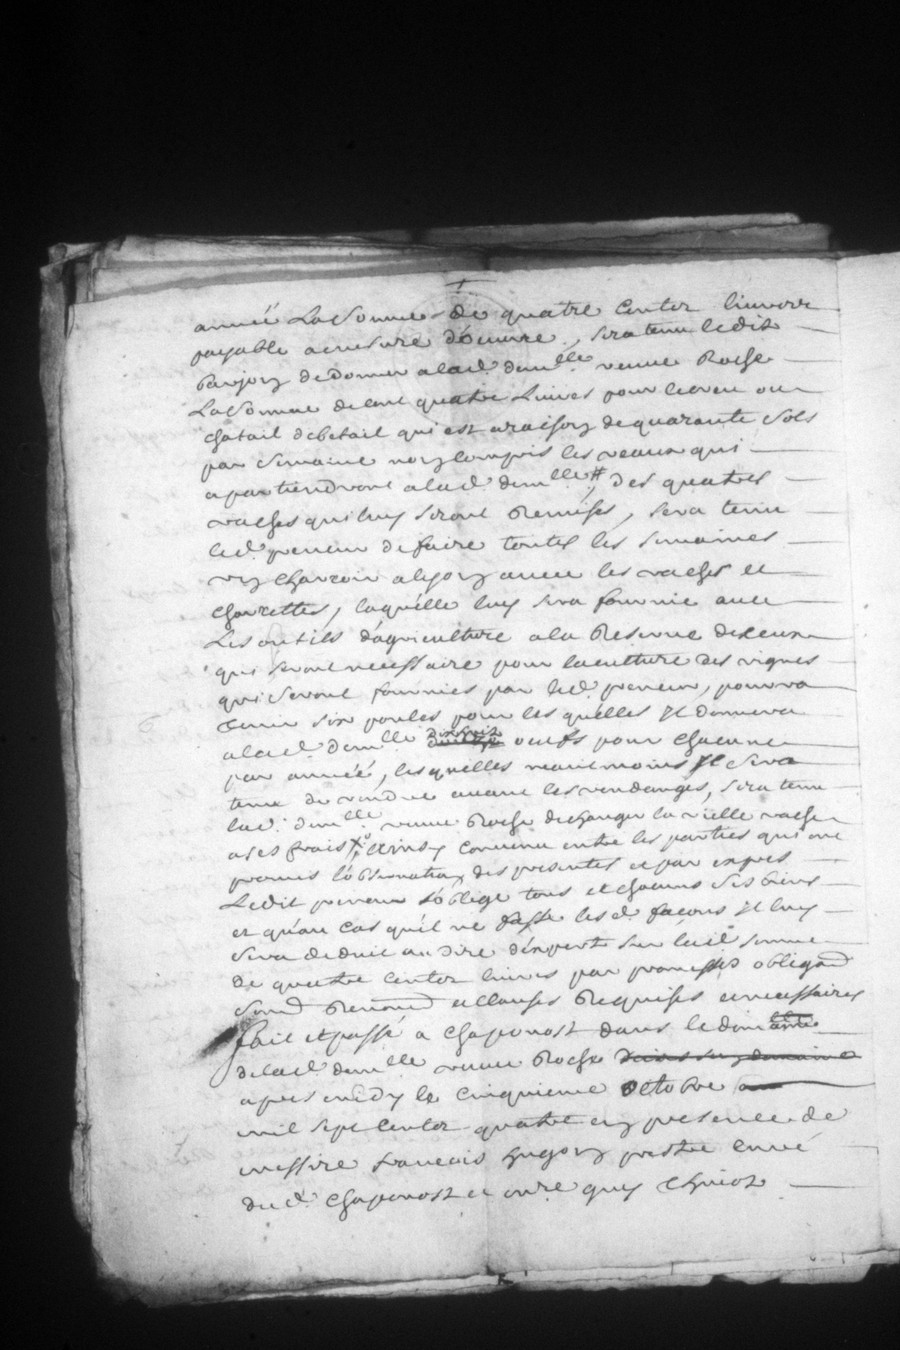 année La Somme de quatre Centz livres
payable amesure d'oeuvre, sera tenu ledit
de Donner alad. damlle veuve Roche
La Somme decent quatre Livres pour le
chatail debetail qui est araison de quarante Sols
par Semaine non Compris les veaux qui
apartiendront alad. damlle # des quatres
vaches qui luy seront Remises, sera tenu
led. preneur de faire toutes les semaines
un charroir alyon avec les vaches et
charrettes, laquelle luy sera fournie avec
Les outils d'agriculture ala Reserve deceux
qui seront necessaire pour la culture des vignes
qui seront fournies par led. preneur, pourra
tenir six poules pour les quelles Il donnera
alad. damlle oeufs pour chacune
par année, lesquelles neantmoins Il sera
tenu de vendre avant les vendanges, sera tenu
lad. damlle veuve Roche dechanger la vielle vache
a ses frais ainsy convenu entre les parties qui ont
promis l'observation des presentes et par expres
Ledit preneur s'oblige tous et chacuns ses biens
et qu'au cas qu'il ne fasse les d. façons Il luy
sera deduit au dire d'expert sur lad. somme
de quatre Centz livres par promesses obligaõn
Renonõn et clauses Requises et necessaires
fait et passé a Chaponost dans le
delad. damlle veuve Roche
apres midy le Cinquieme octobre
mil sept Centz quatre en presence de
messire francois hugon prestre Curé
dud. Chaponost et